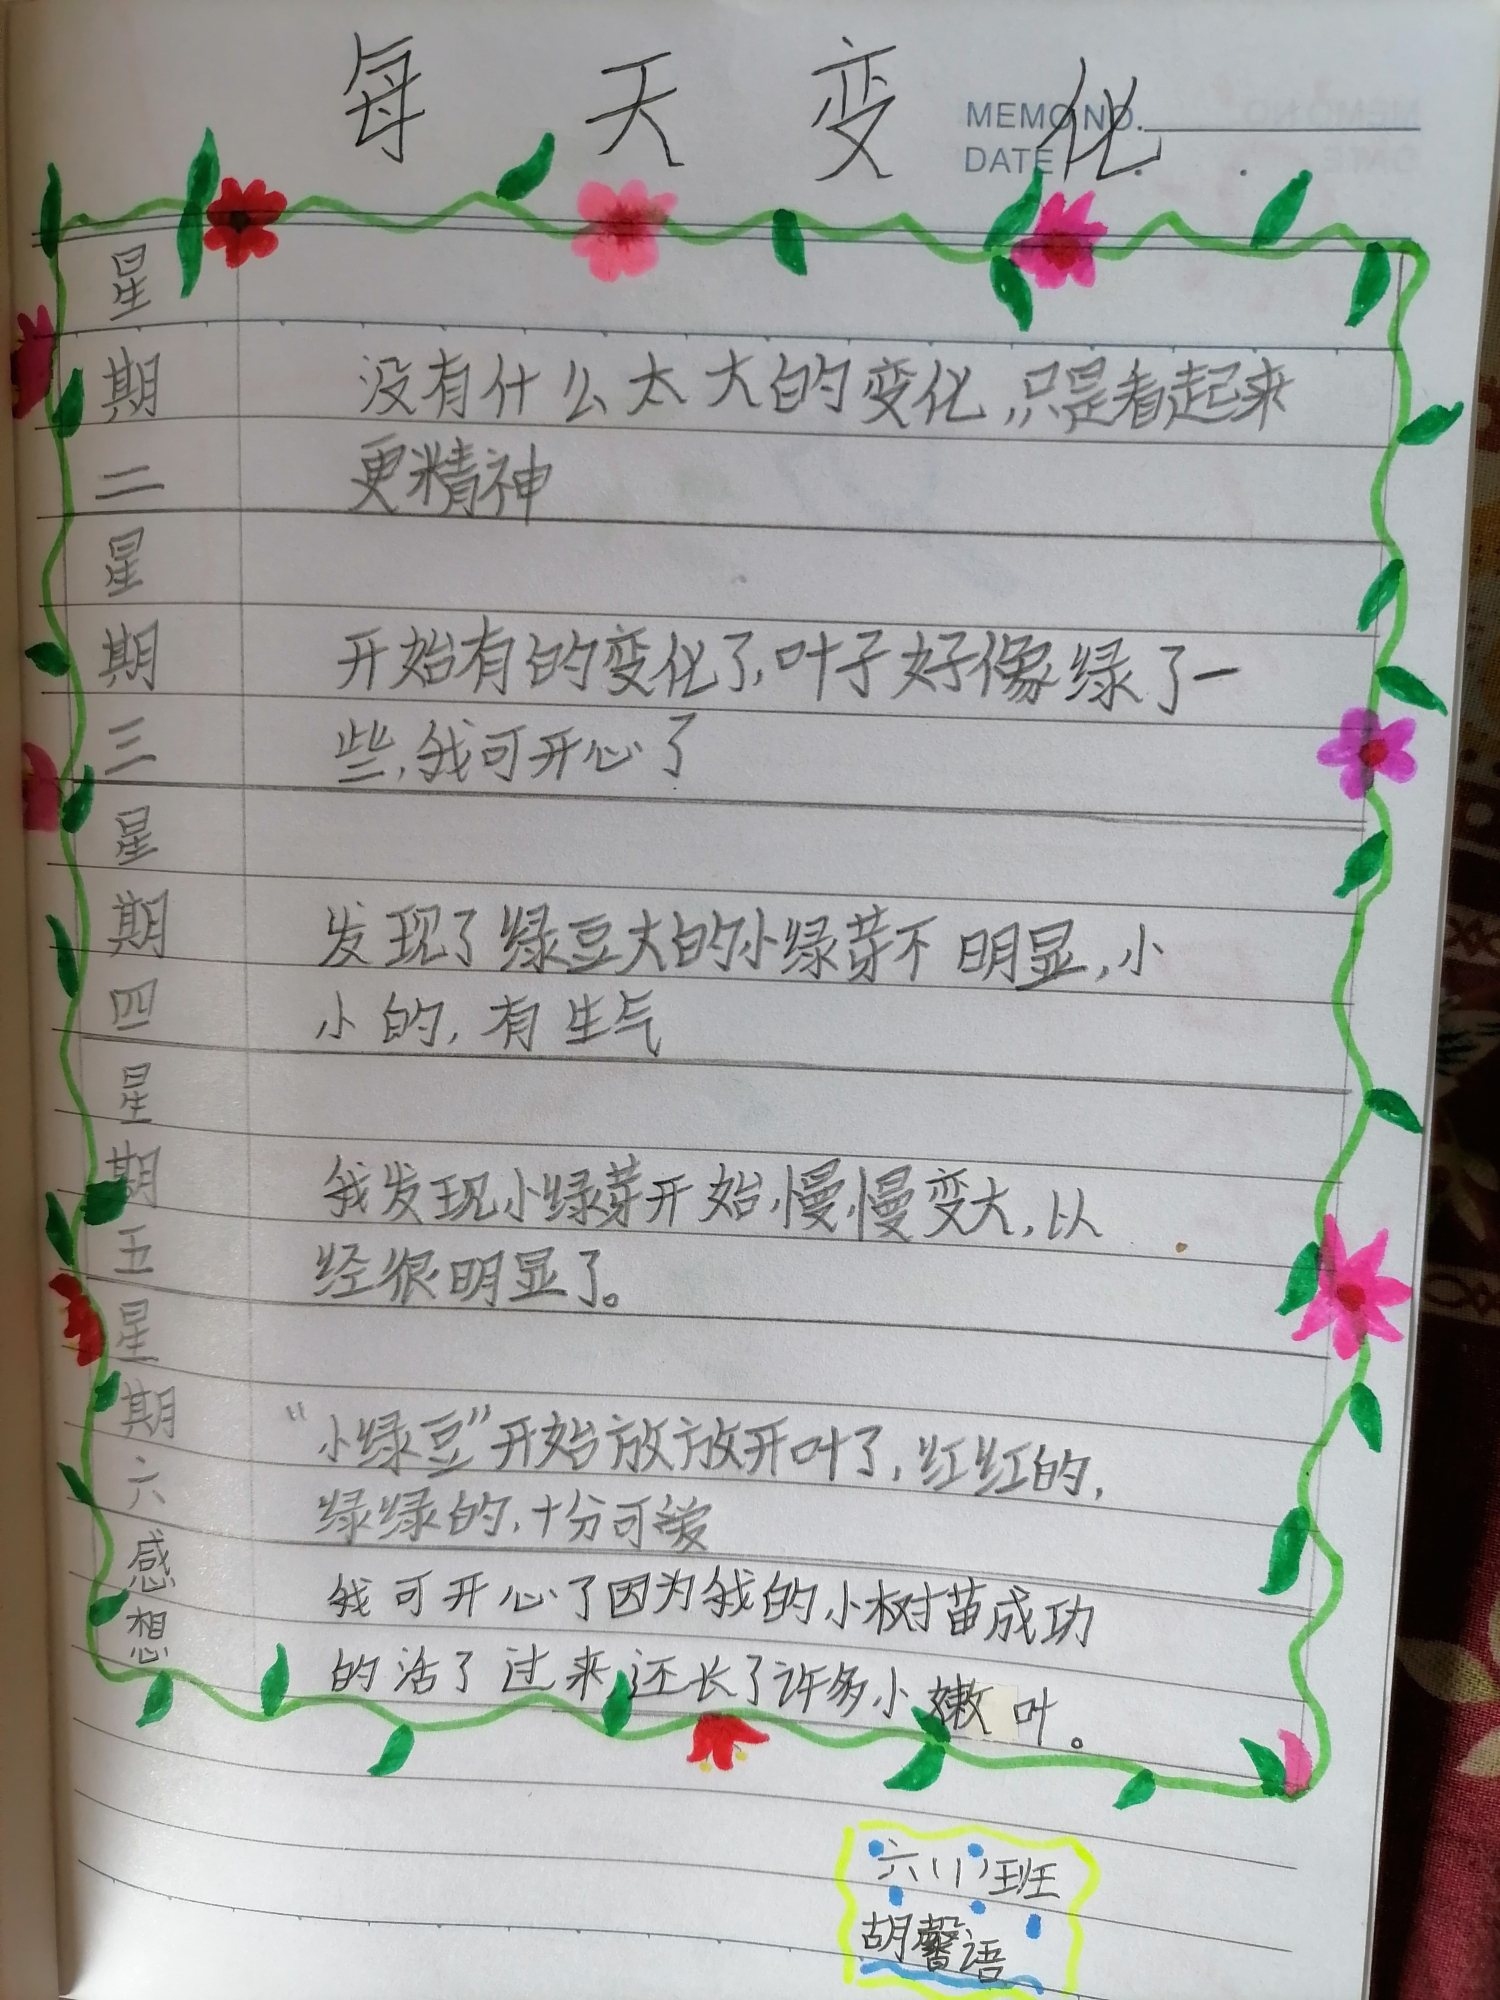 每天变化
MEMO NO.
DATE
星期二
没有什么太大的变化,只是看起来
更精神
星期三
开始有的变化了,叶子好像绿了一
些,我可开心了
星期四
发现了绿豆大的小绿芽不明显,小
小的,有生气
星期五
我发现小绿芽开始慢慢变大,以
经很明显了。
星期六
“小绿豆”开始放放开叶了,红红的,
绿绿的,十分可爱
感想
我可开心了因为我的小树苗成功
的活了过来,还长了许多小嫩叶。
六(1)班
胡馨语